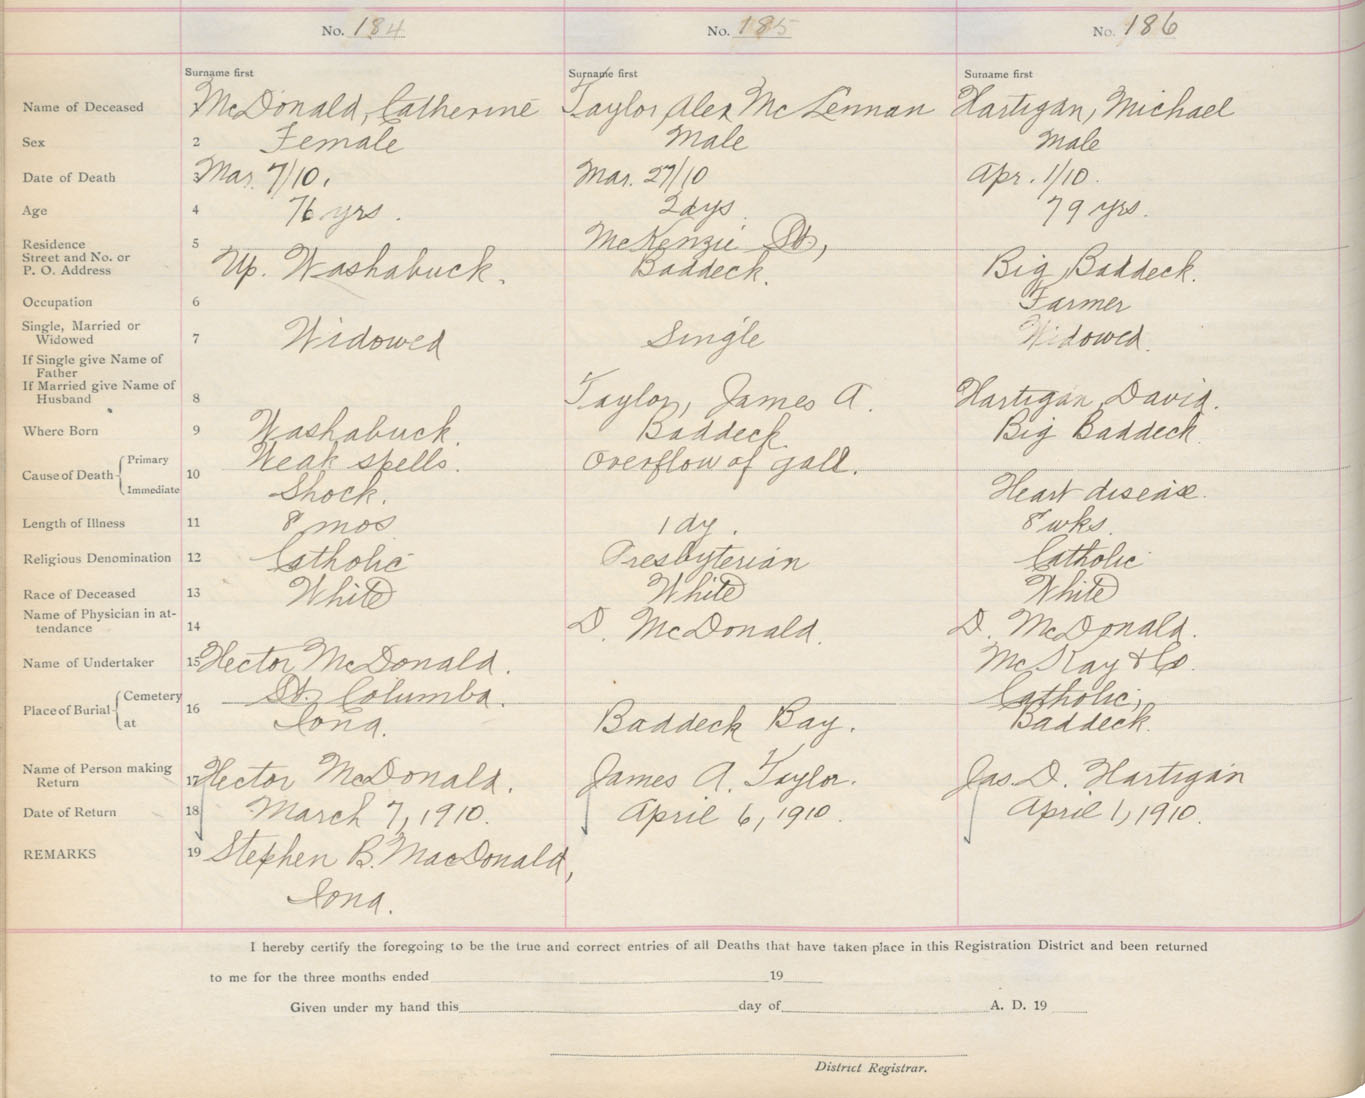 No. 184 No. 185 No. 186
Surname first Surname first Surname first
Name of Deceased McDonald, Catherine Taylor, Alex McLennan Hartigan, Michael
Sex 2 Female Male Male
Date of Death 3 Mar. 7/10. Mar. 27/10 Apr. 1/10.
Age 4 76 yrs. 2 dys. 79 yrs.
Residence 5 McKenzie St.,
Street and No. or
P. O. Address Up. Washabuck. Baddeck. Big Baddeck.
Occupation 6 Farmer
Single, Married or
Widowed 7 Widowed Single Widowed.
If Single give Name of
Father
If Married give Name of
Husband 8 Taylor, James A. Hartigan, David.
Where Born 9 Washabuck. Baddeck Big Baddeck
Cause of Death Primary Weak spells. Overflow of gall.
Immediate 10 Shock. Heart disease.
Length of Illness 11 8 mos 1 dy. 8 wks.
Religious Denomination 12 Catholic Presbyterian Catholic
Race of Deceased 13 White White White
Name of Physician in at-
tendance 14 D. McDonald. D. McDonald.
Name of Undertaker 15 Hector McDonald. McKay & Co.
Place of Burial Cemetery St. Columba. Catholic,
at 16 Iona. Baddeck Bay. Baddeck.
Name of Person making
Return 17 Hector McDonald. James A. Taylor. Jas. D. Hartigan
Date of Return 18 March 7, 1910. April 6, 1910. April 1, 1910.
REMARKS 19 Stephen B. MacDonald,
Iona.
I hereby certify the foregoing to be the true and correct entries of all Deaths that have taken place in this Registration District and been returned
to me for the three months ended 19
Given under my hand this day of A. D. 19
District Registrar.